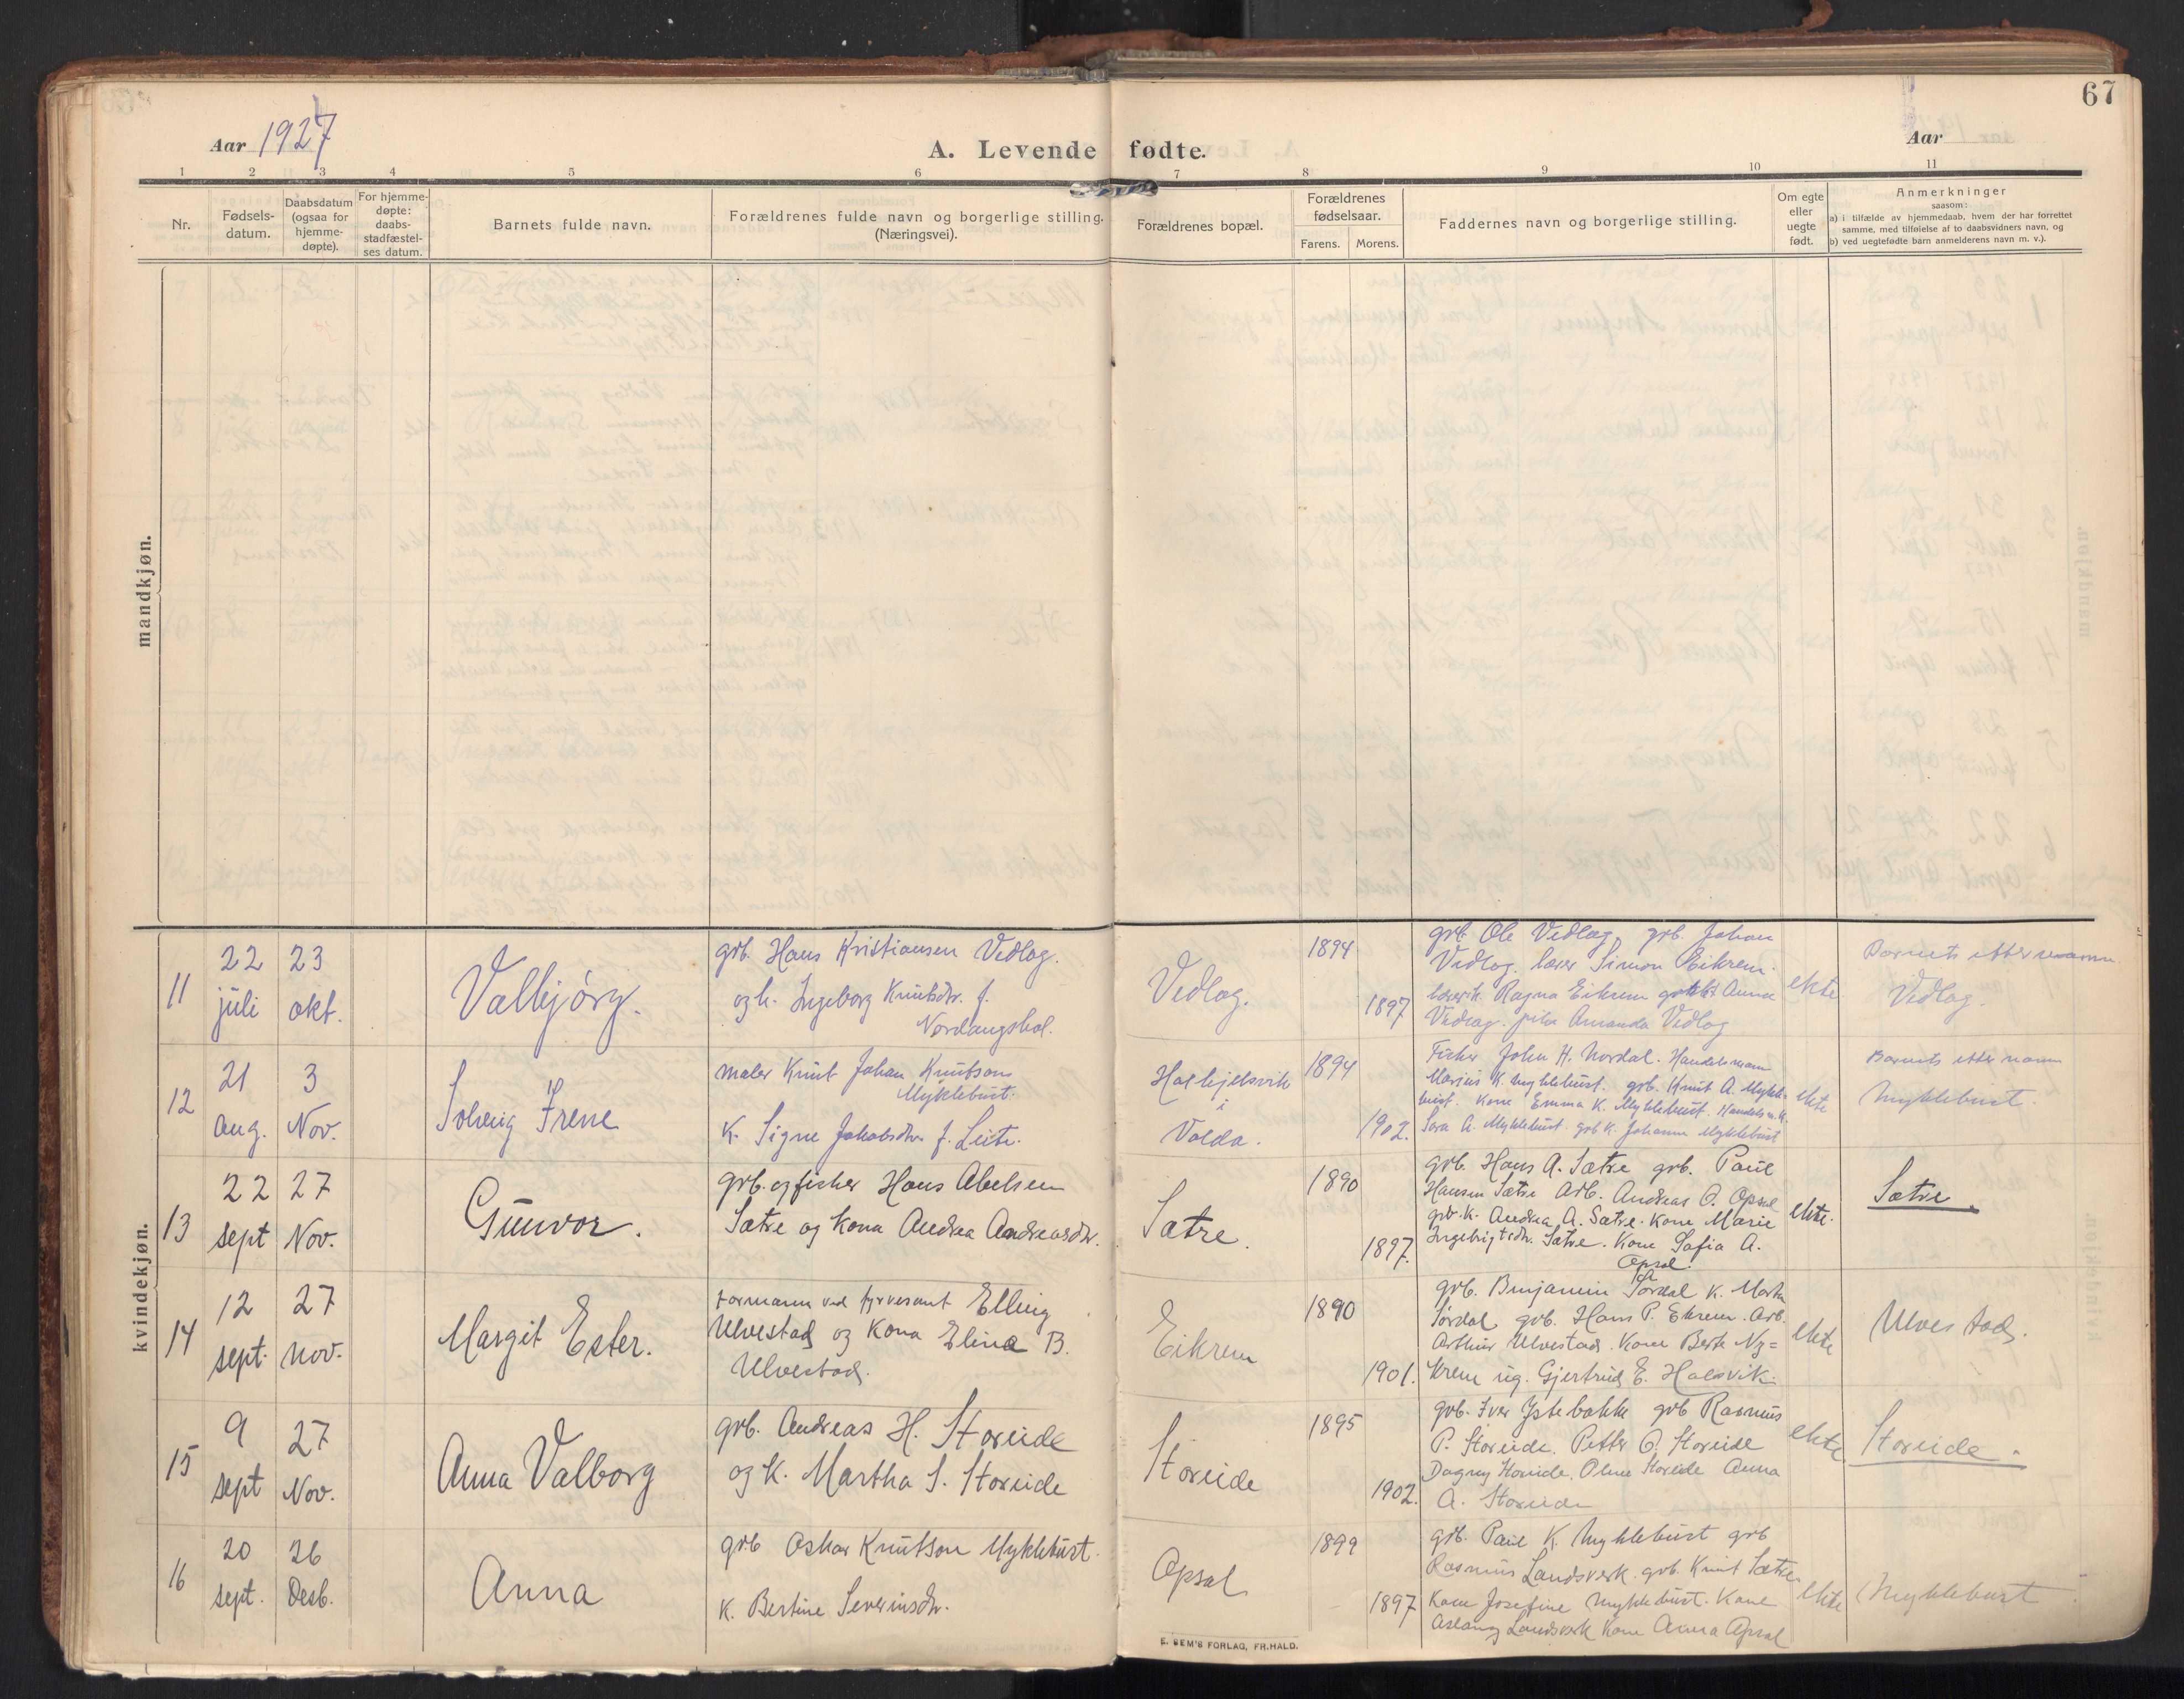 67
Aar 1927
A. Levende fødte.
Aar
1 2 3 4 5 6 7 8 9 10 11
Nr.
Fødsels-
datum.
Daabsdatum
(ogsaa for
hjemme-
døpte).
For hjemme-
døpte:
daabs-
stadfæstel-
ses datum.
Barnets fulde navn.
Forældrenes fulde navn og borgerlige stilling.
(Næringsvei).
Forældrenes bopæl.
Forældrenes
fødselsaar.
Farens. Morens.
Faddernes navn og borgerlige stilling.
Om egte
eller
uegte
født.
Anmerkninger
saasom:
a) i tilfælde av hjemmedaab, hvem der har forrettet
samme, med tilføielse af to daabsvidners navn, og
b) ved uegtefødte barn anmelderens navn m. v.).
mandkjøn.
kvindekjøn.
11
22
juli
23
okt.
Valbjörg.
grb. Hans Kristiansen Vedlog.
og k. Ingeborg Knutsdtr. f.
Nordangshol.
Vedlog.
1894
1897
grb. Ole Vedlog. grb. Johan
Vedlog. lærer Simon Eikrem.
lærerk. Ragna Eikrem grbk. Anna
Vedlog. pike Amanda Vedlog
ekte
Barnets etternavn
Vedlog.
12
21
aug.
3
Nov.
Solveig Irene
maler Knut Johan Knutson
Myklebust.
K. Signe Jakobsdtr. f. Leite.
Halkjelsvik
i
Volda.
1894
1902.
Fisker John H. Nordal. Handelsmann
Marius K. Myklebust. grb. Knut A. Mykle-
bust. Kone Emma K. Myklebust. Handelsm. k.
Sara A. Myklebust. grb k. Johanna Myklebust
ekte
Barnets etternavn
Myklebust.
13
22
sept
27
Nov.
Gunvor.
grb. og fisker Hans Abelsen
Sætre og Kona Andrea Andreasdtr.
Sætre.
1890
1897.
grb. Hans A. Sætre grb. Paul
Hansen Sætre Arb. Andreas O. Opsal
grb. k. Andrea A. Sætre. Kone Marie
Ingebrigtsdtr. Sætre. Kone Sofia A.
Opsal.
ekte.
Sætre.
14
12
sept.
27
nov.
Margit Ester.
Formann ved fyrvesent Elling
Ulvestad og Kona Elina B.
Ulvestad.
Eikrem
1890
1901.
grb. Benjamin Sørdal K. Marta
Sørdal grb. Hans P. Ekrem. Arb.
Arthur Ulvestad. Kone Berte Ny=
krem ug. Gjertrud E. Halsvik.
ekte
Ulvestad.
15
9
sept
27
Nov.
Anna Valborg
grb. Andreas H. Storeide
og K. Martha S. Storeide
Storeide
1895
1902.
grb. Iver Ystebakke grb Rasmus
P. Storeide. Petter O. Storeide
Dagny Storeide. Oline Storeide Anna
A. Storeide
ekte.
Storeide.
16
20
sept.
26
Desb.
Anna
grb Oskar Knutson Myklebust.
K. Bertine Severinsdtr.
Opsal
1899
1897
grb. Paul K. Myklebust grb
Rasmus Landsverk. grb. Knut Sætre.
Kone Josefine Myklebust. Kone
Aslaug Landsverk Kone Anna Opsal
ekte
Myklebust
E. SEM'S FORLAG, FR.HALD.